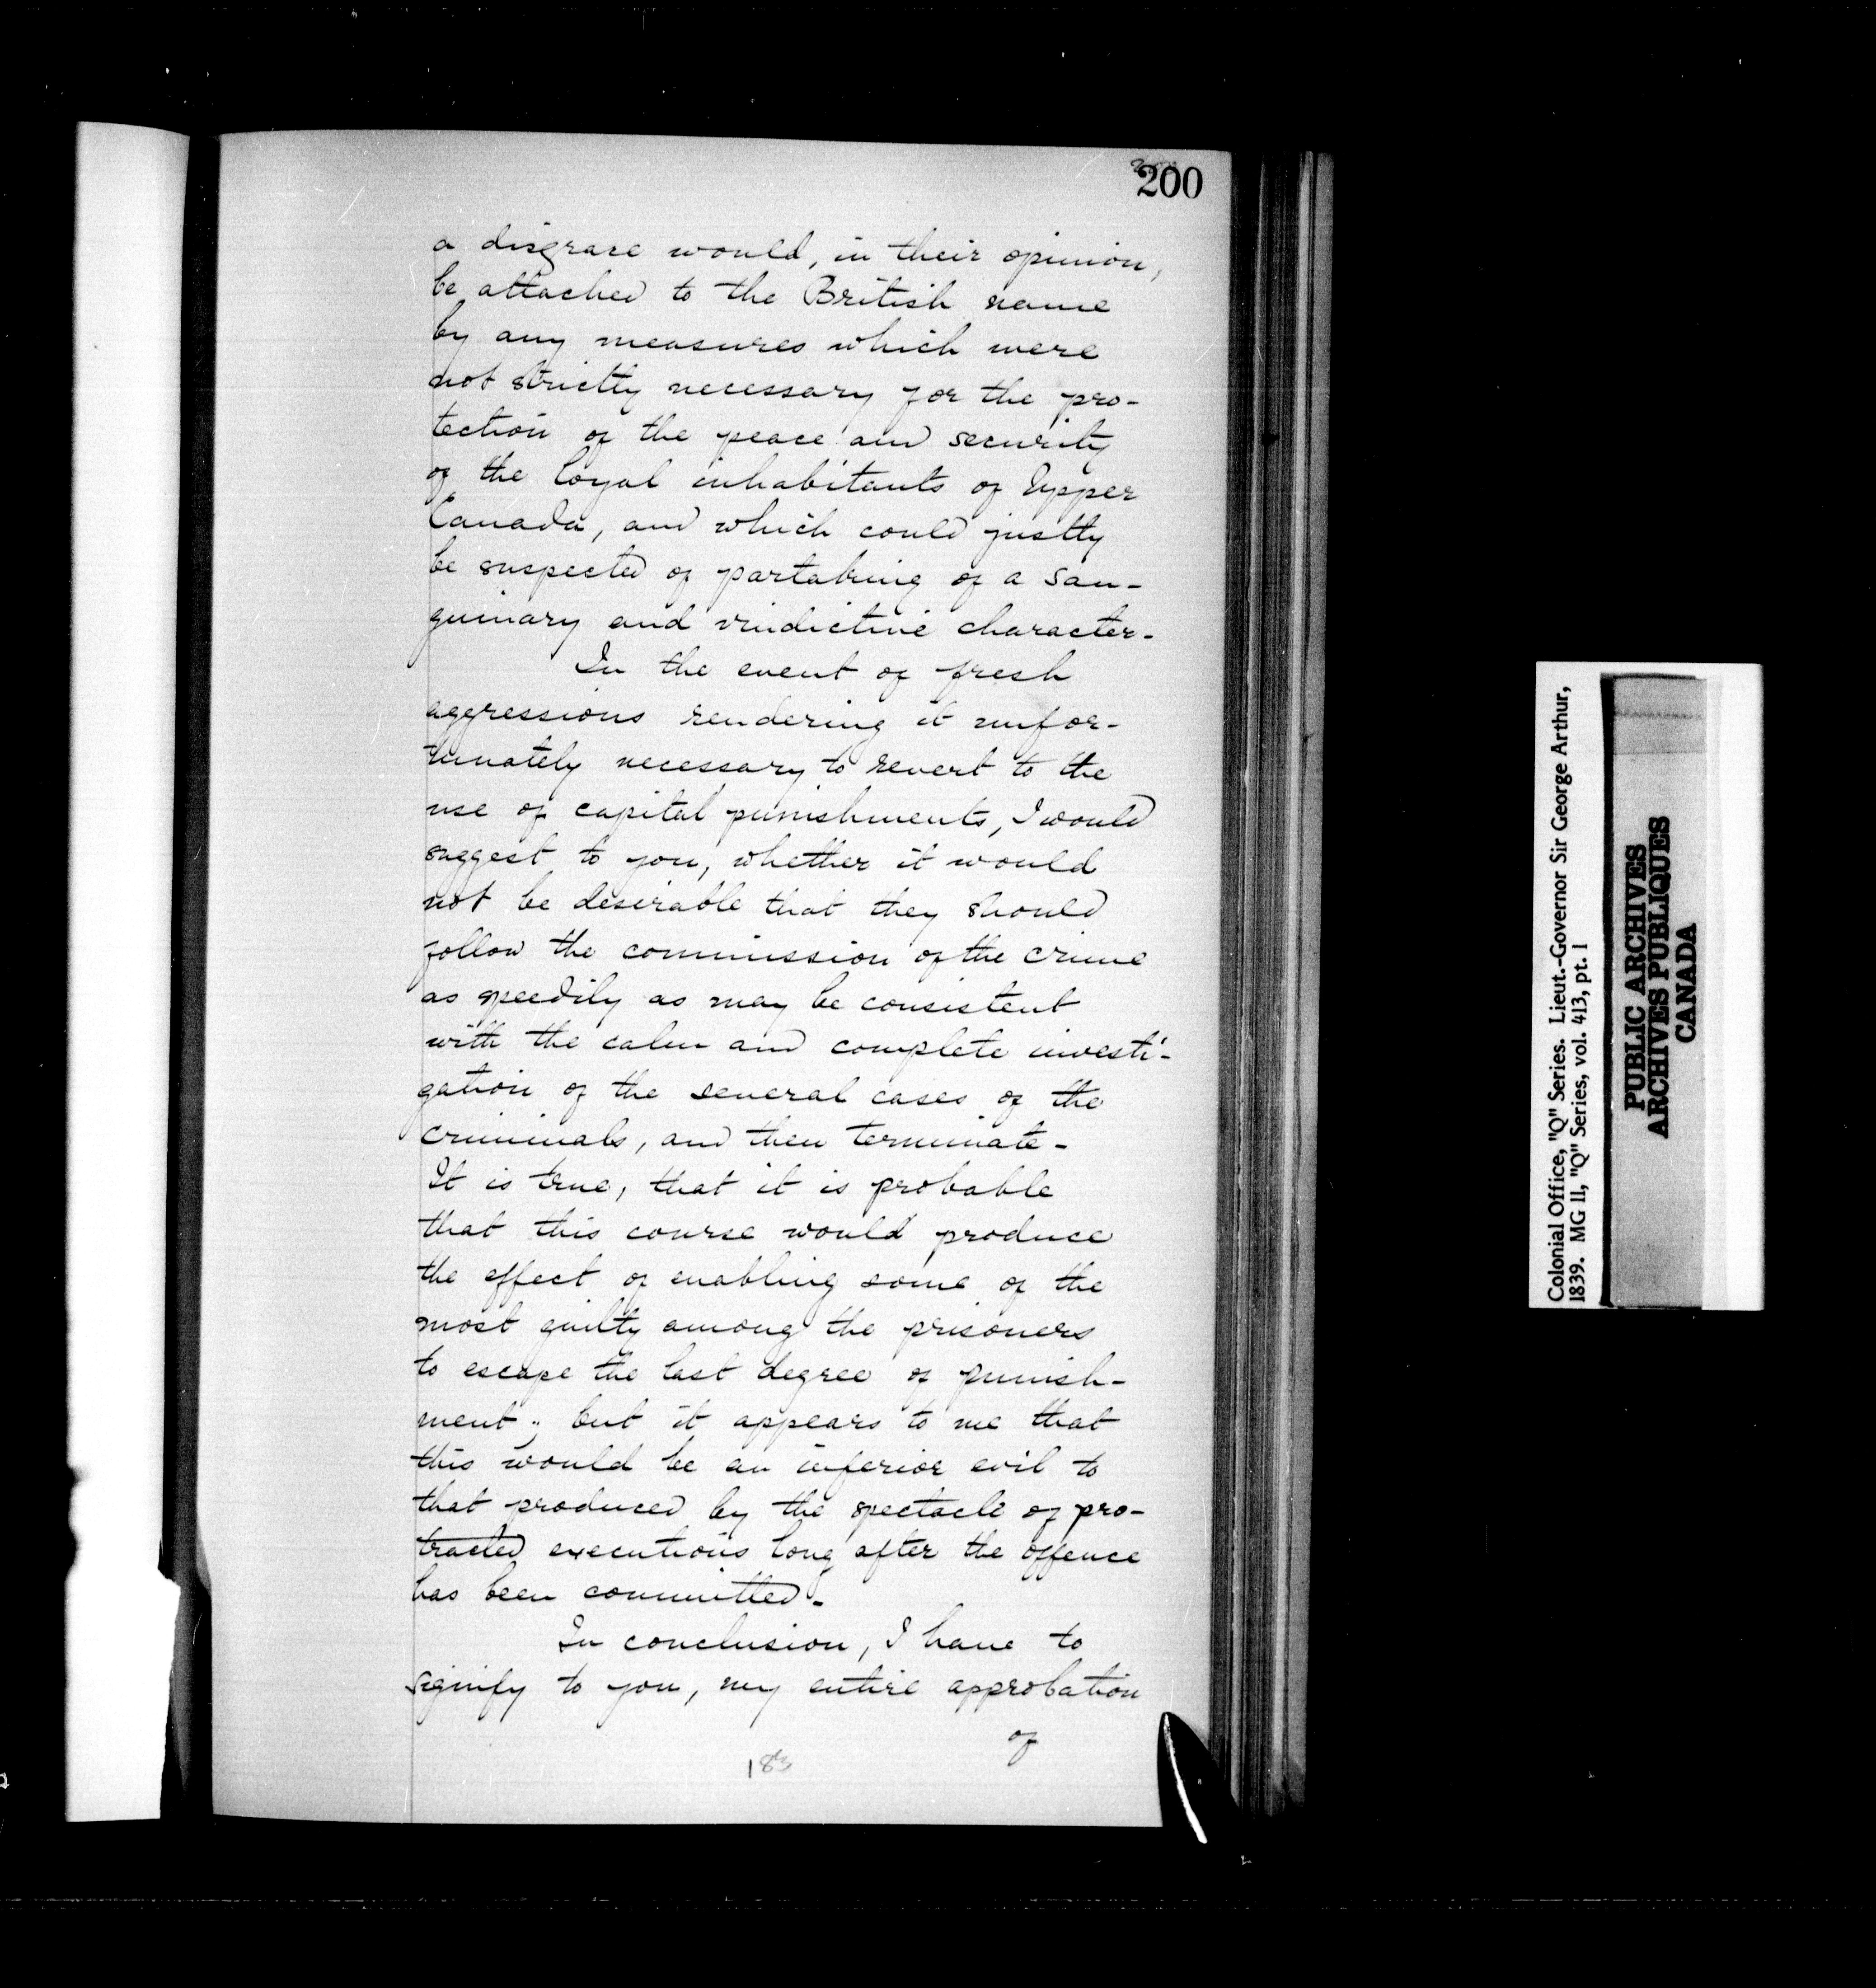 200
a disgrace would, in their opinion,
be attached to the British name
by any measures which were
not strictly necessary for the pro-
tection of the peace and security
of the loyal inhabitants of Upper
Canada, and which could justly
be suspected of partaking of a san-
guinary and vindictive character-
In the event of fresh
aggressions rendering it unfor-
tunately necessary to revert to the
use of capital punishments, I would
suggest to you, whether it would
not be desirable that they should
follow the commission of the crime
as speedily as may be consistent
with the calm and complete investi-
gation of the several cases of the
criminals, and then terminate-
It is true, that it is probable
that this course would produce
the effect of enabling some of the
most guilty among the prisoners
to escape the last degree of punish-
ment; but it appears to me that
this would be an inferior evil to
that produced by the spectacle of pro-
tracted executions long after the offence
has been committed-
In conclusion, I have to
signify to you, my entire approbation
of
183
Colonial Office, "Q" Series. Lieut.-Governor Sir George Arthur,
1839. MG 11, "Q" Series, vol. 413, pt. 1
PUBLIC ARCHIVES
ARCHIVES PUBLIQUES
CANADA